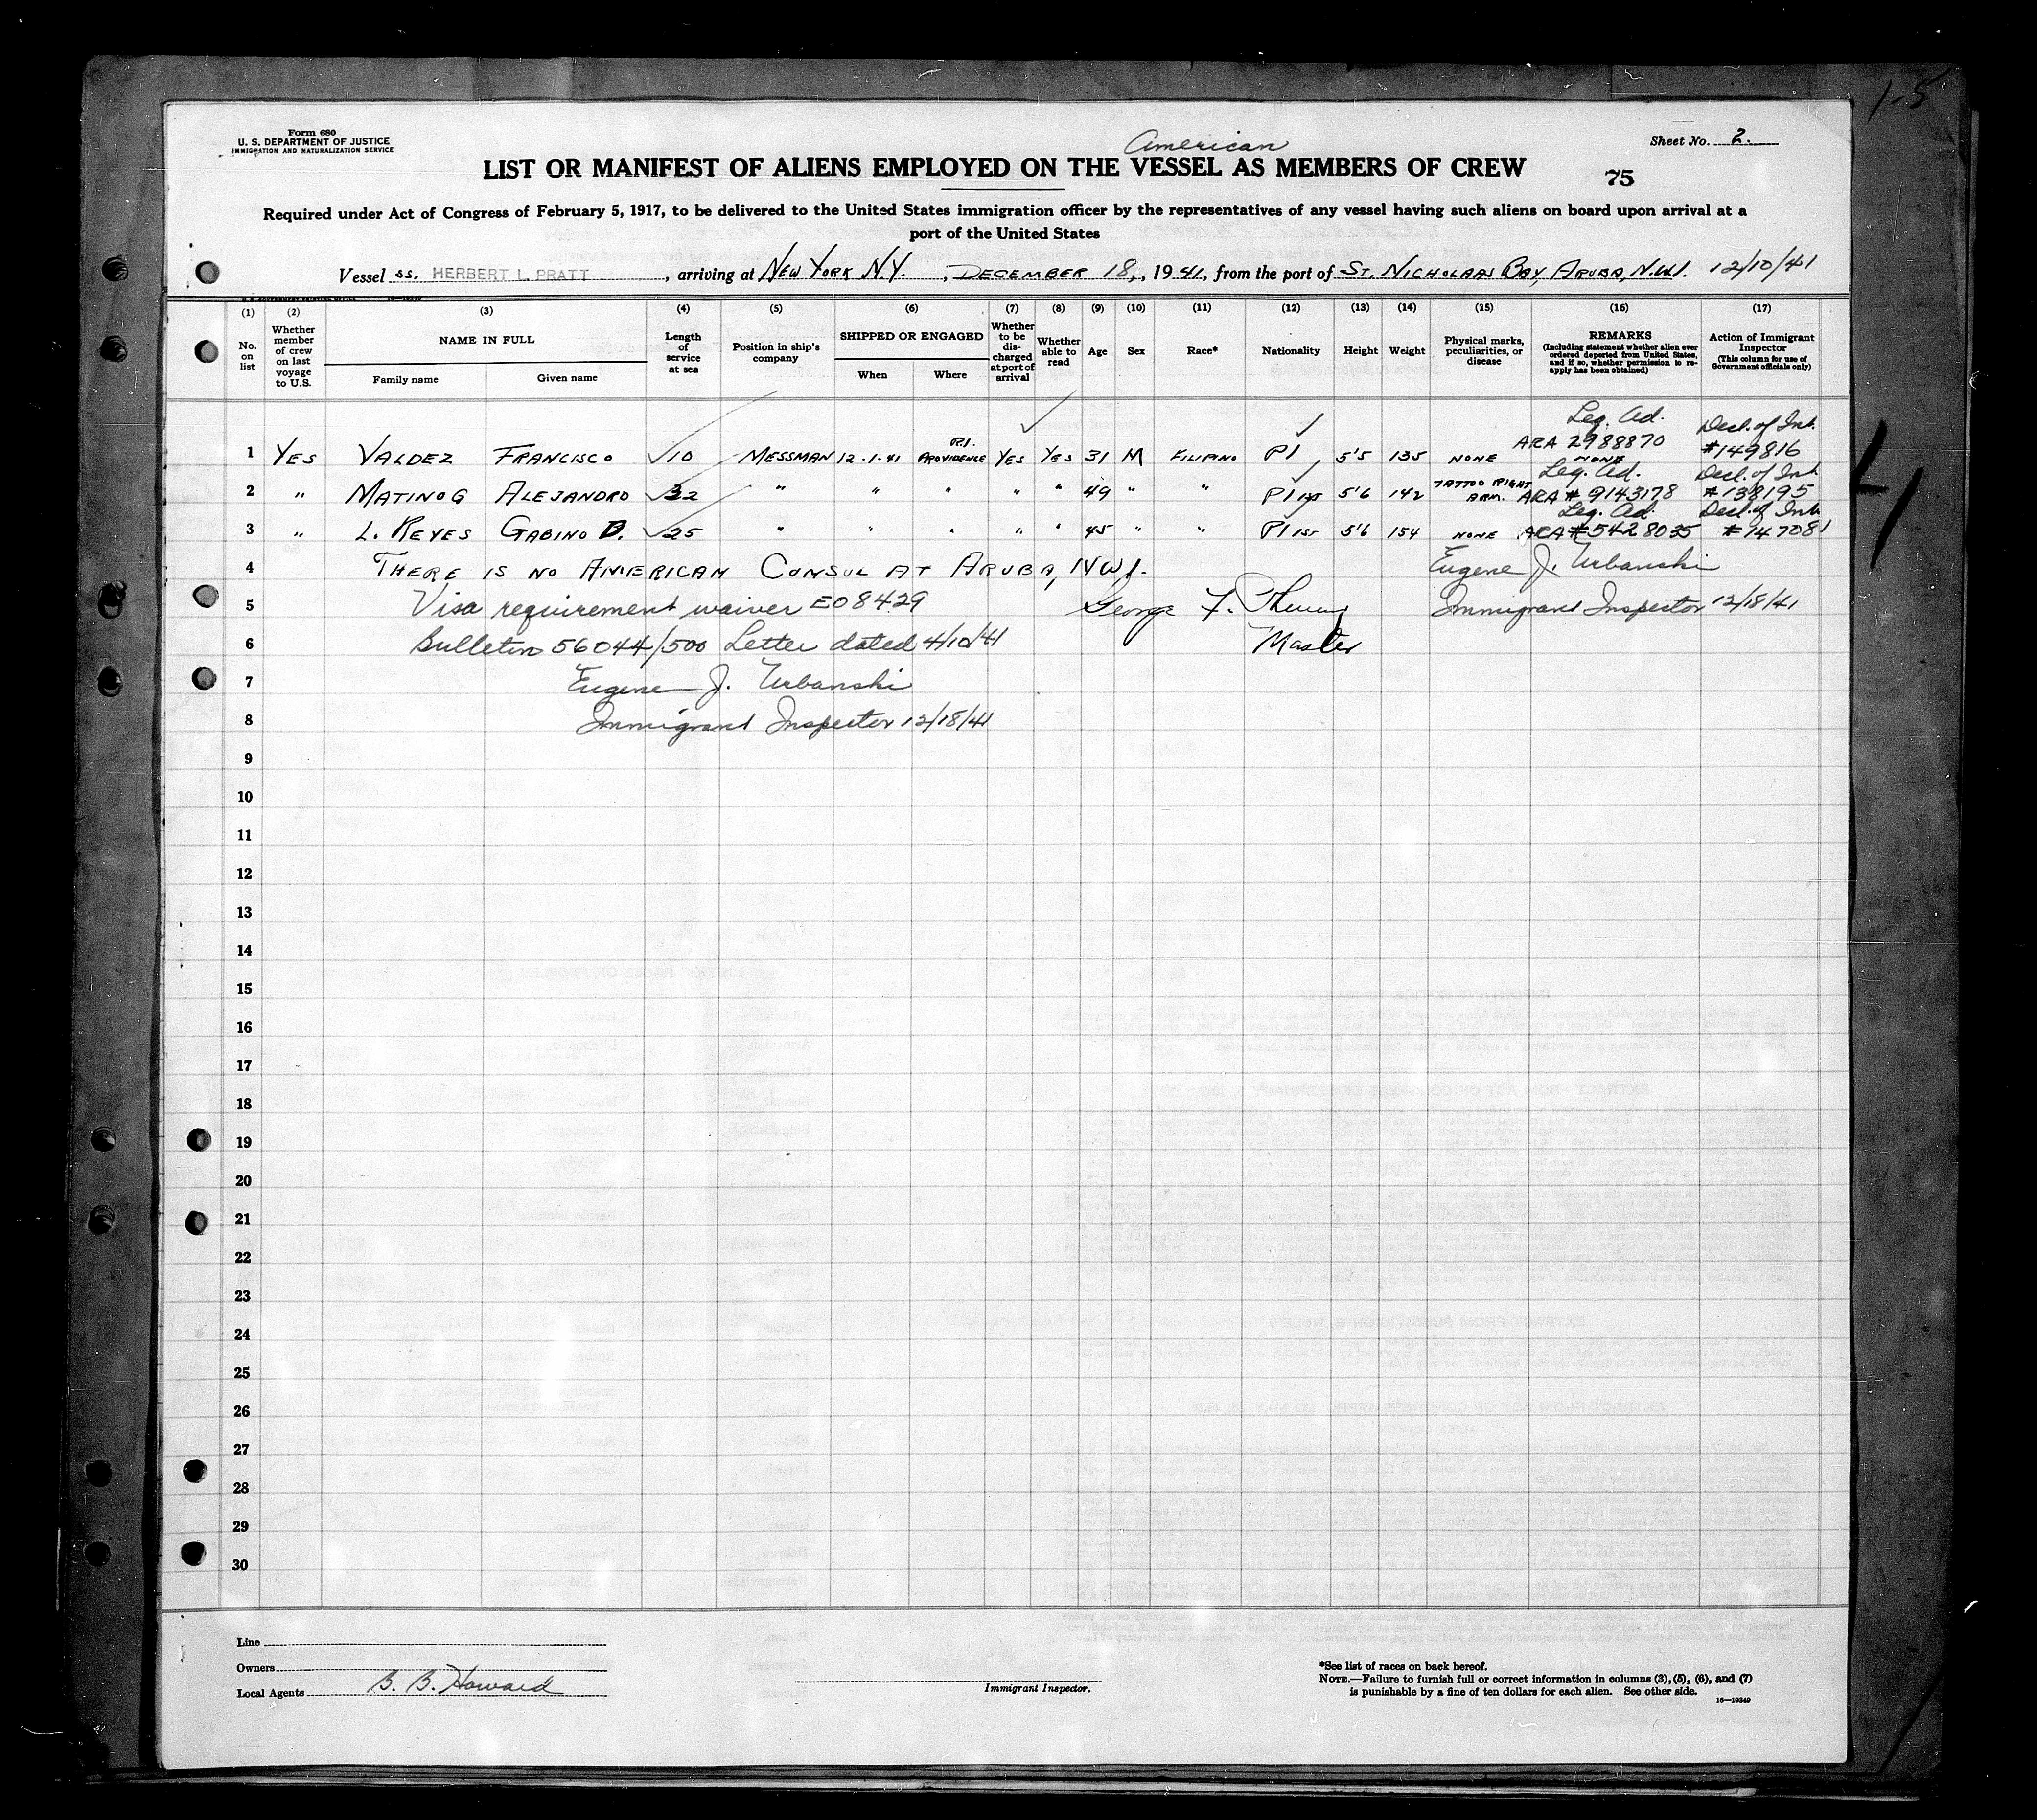 1-5
Form 680
U. S. DEPARTMENT OF JUSTICE
IMMIGRATION AND NATURALIZATION SERVICE
American
Sheet No. 2.
LIST OR MANIFEST OF ALIENS EMPLOYED ON THE VESSEL AS MEMBERS OF CREW
75
Required under Act of Congress of February 5, 1917, to be delivered to the United States immigration officer by the representatives of any vessel having such aliens on board upon arrival at a
port of the United States
Vessel SS. HERBERT L. PRATT, arriving at NEW YORK N.Y., DECEMBER 18, 1941, from the port of ST. NICHOLAAS BAY, ARUBA, N.W.I. 12/10/41
(1) (2) (3) (4) (5) (6) (7) (8) (9) (10) (11) (12) (13) (14) (15) (16) (17)
No. on list
Whether member of crew on last voyage to U.S.
NAME IN FULL
Family name Given name
Length of service at sea
Position in ship's company
SHIPPED OR ENGAGED
When Where
Whether to be discharged at port of arrival
Whether able to read
Age
Sex
Race*
Nationality
Height
Weight
Physical marks, peculiarities, or disease
REMARKS
(Including statement whether alien ever ordered deported from United States, and if so, whether permission to reapply has been obtained)
Action of Immigrant Inspector
(This column for use of Government officials only)
1 YES VALDEZ FRANCISCO 10 MESSMAN 12-1-41 PROVIDENCE R.I. YES YES 31 M FILIPINO PI 5'5 135 NONE Leg. Ad. ARA 2988870 NONE Decl. of Int. #149816
2 " MATINOG ALEJANDRO 32 " " " " " 49 " " PI 5'6 142 TATTOO RIGHT ARM. Leg. Ad. ARA # 9143178 Decl. of Int #138195
3 " L. REYES GABINO D. 25 " " " " " 45 " " PI 5'6 154 NONE Leg. Ad. ARA #5428035 Decl. of Int #147081
4 THERE IS NO AMERICAN CONSUL AT ARUBA, N.W.I. Eugene J. Urbanski
5 Visa requirement waiver EO8429 George F. Immigrant Inspector 12/18/41
6 Bulletin 56044/500 Letter dated 4/10/41 Master
7 Eugene J. Urbanski
8 Immigrant Inspector 12/18/41
9
10
11
12
13
14
15
16
17
18
19
20
21
22
23
24
25
26
27
28
29
30
Line
Owners
Local Agents B. B. Howard
Immigrant Inspector.
*See list of races on back hereof.
NOTE.—Failure to furnish full or correct information in columns (3), (5), (6), and (7)
is punishable by a fine of ten dollars for each alien. See other side.
16—19349